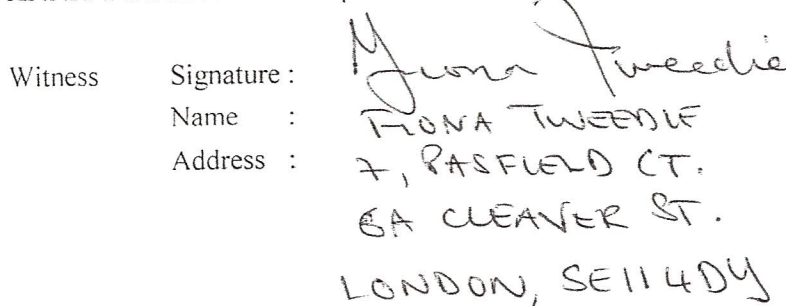 Witness Signature : Fiona Tweedie
Name : FIONA TWEEDIE
Address : 7, PASFIELD CT.
6A CLEAVER ST.
LONDON, SE11 4DY